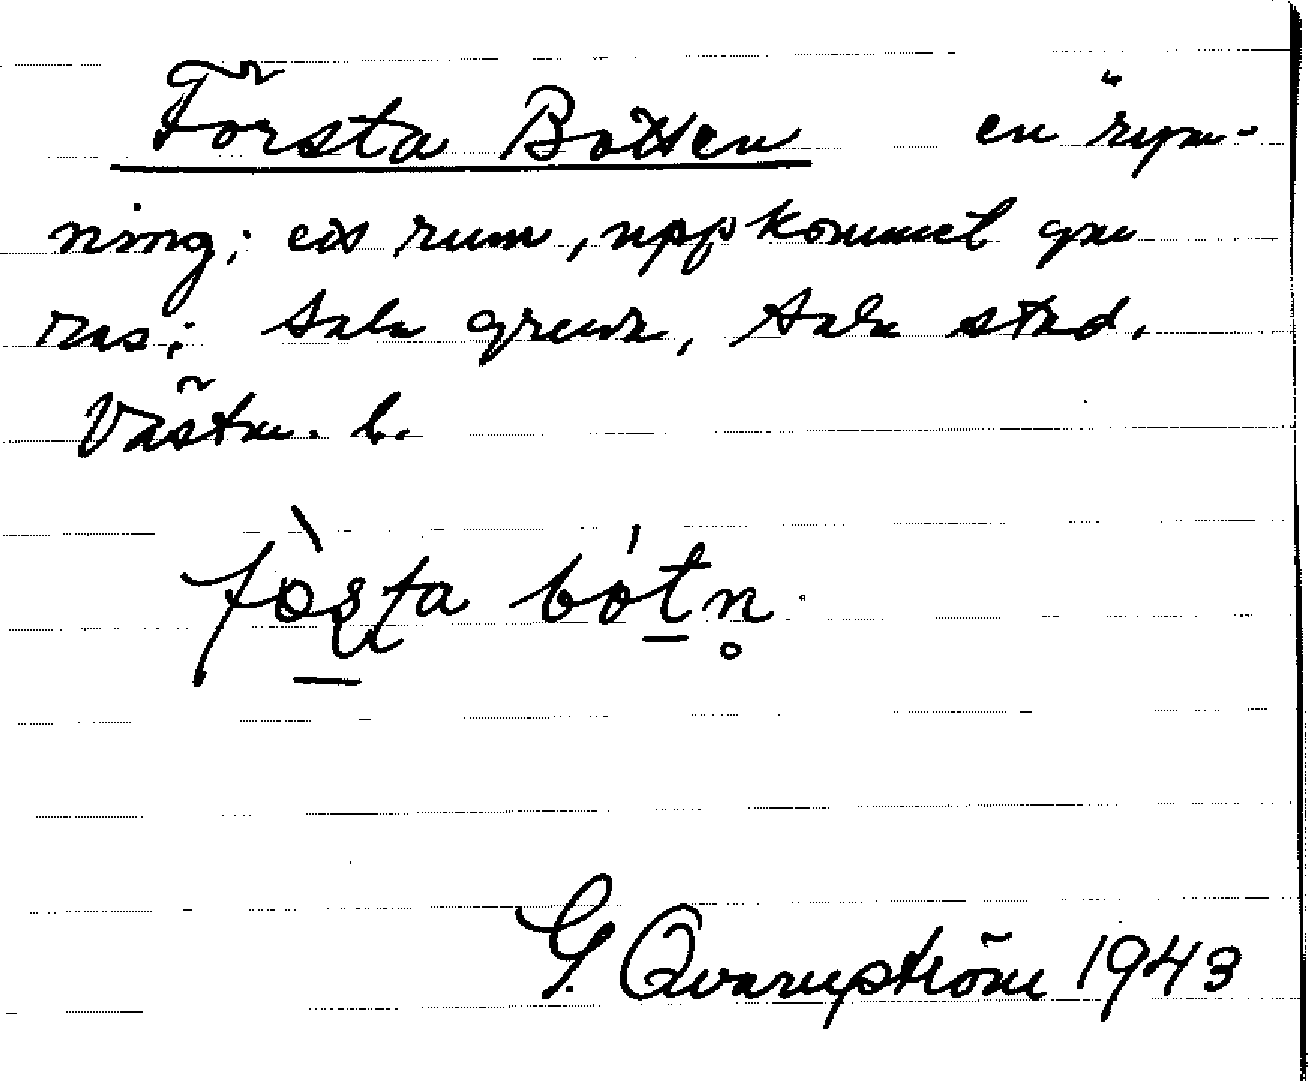 Första Botten en rym-
ning; ett rum, uppkommet gm
ras; Sala gruva, Sala stad.
Västm. l.
bótn̥
G. Qvarnström 1943